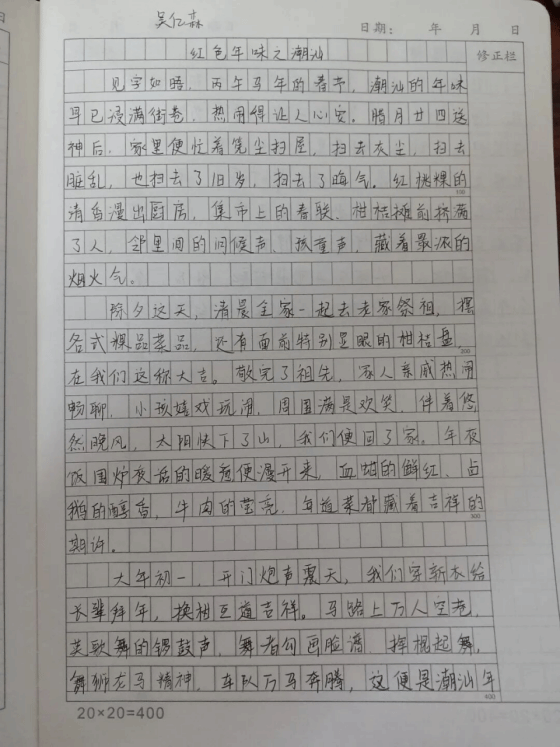 吴亿森
日期： 年 月 日
红色年味之潮汕
修正栏
见字如晤，丙午马年的春节，潮汕的年味
早已浸满街巷，热闹得让人心安。腊月廿四送
神后，家里便忙着筅尘扫屋，扫去灰尘，扫去
脏乱，也扫去了旧岁，扫去了晦气。红桃粿的
清香漫出厨房，集市上的春联、柑桔摊前挤满
了人，邻里间的问候声、孩童声，藏着最浓的
烟火气。
除夕这天，清晨全家一起去老家祭祖，摆
各式粿品菜品，还有面前特别显眼的柑桔盘，
在我们这称大吉。敬完了祖先，家人亲戚热闹
畅聊，小孩嬉戏玩闹，周围满是欢笑，伴着悠
然晚风，太阳快下了山，我们便回了家。年夜
饭围炉夜话的暖意便漫开来，血蚶的鲜红、卤
鹅的醇香、牛肉的莹亮，每道菜都藏着吉祥的
期许。
大年初一，开门炮声震天，我们穿新衣给
长辈拜年，换柑互道吉祥。马路上万人空巷，
英歌舞的锣鼓声，舞者勾画脸谱，挥棍起舞，
舞狮龙马精神，车队万马奔腾，这便是潮汕年
100
200
300
400
20×20=400